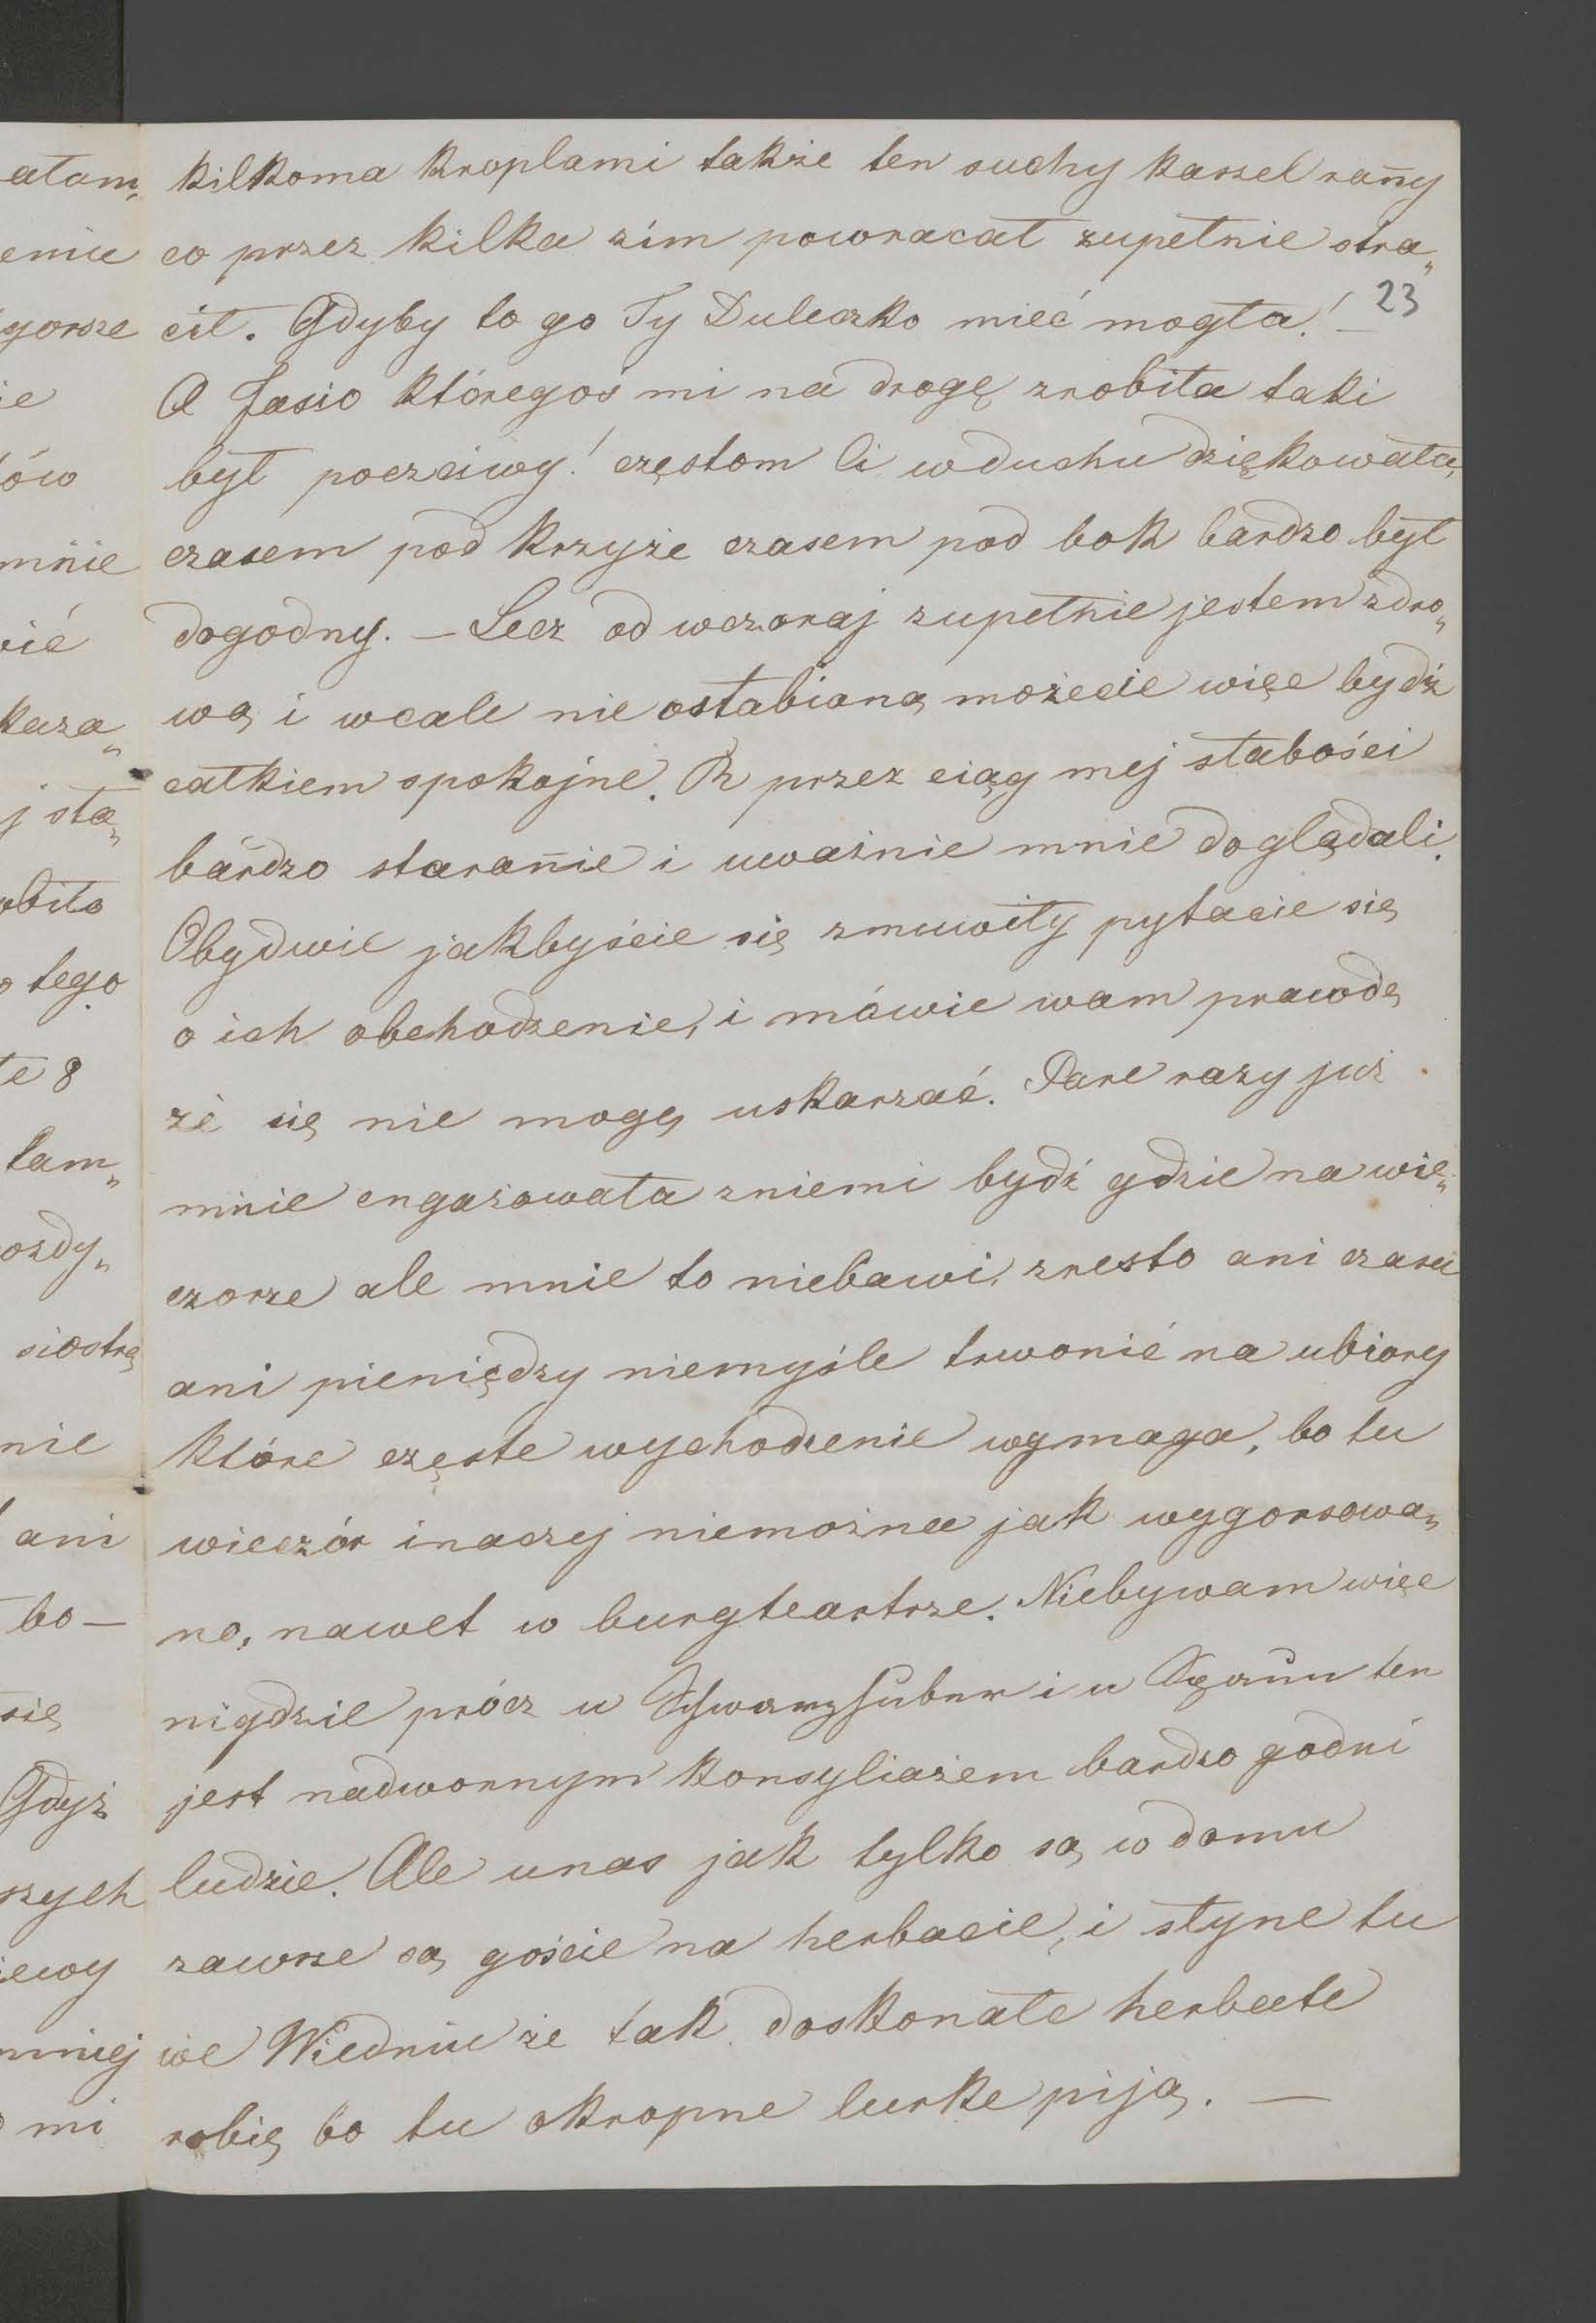 atam„
eniu
gorsze
ie
ów
mnie
wić
kaza„
j sta„
obito
o tego
te 8
tam„
ozdy„
siostrę
nie
ani
bo —
się
Gdyż
szych
iewy
mniej
mi
kilkoma kroplami także ten suchy kaszel rañy
co przez kilka zim powracał zupełnie stra„
23
cił. Gdyby to go Ty Duleczko mieć mogła! —
A Jasio któregoś mi na drogę zrobiła taki
był poczciwy! częstom Ci w duchu dziękowała,
czasem pod krzyże czasem pod bok bardzo był
dogodny. — Lecz od wczoraj zupełnie jestem zdro„
wą i wcale nie osłabioną możecie więc bydź
całkiem spokojne. R przez ciąg mej słabości
bardzo starañie i uważnie mnie doglądali.
Obydwie jakbyście się zmuwiły pytacie się
o ich obchodzenie, i mówie wam prawdę
że się nie mogę uskarzać. Pare razy już
mnie engażowała zniemi bydź gdzie na wie„
czorze ale mnie to niebawi, zresto ani czasu
ani pieniędzy niemyśle trwonić na ubiory
które częste wychodzenie wymaga, bo tu
wieczór inaczej niemożna jak wygorsowa„
no, nawet w burgteartrze. Niebywam więc
nigdzie prócz u Schwarzhuber i u ten
jest nadwornym konsyliażem bardzo godni
ludzie. Ale unas jak tylko są w domu
zawsze są goście na herbacie, i słyne tu
we Wiedniu że tak doskonałe herbate
robię bo tu okropne lurke piją. —